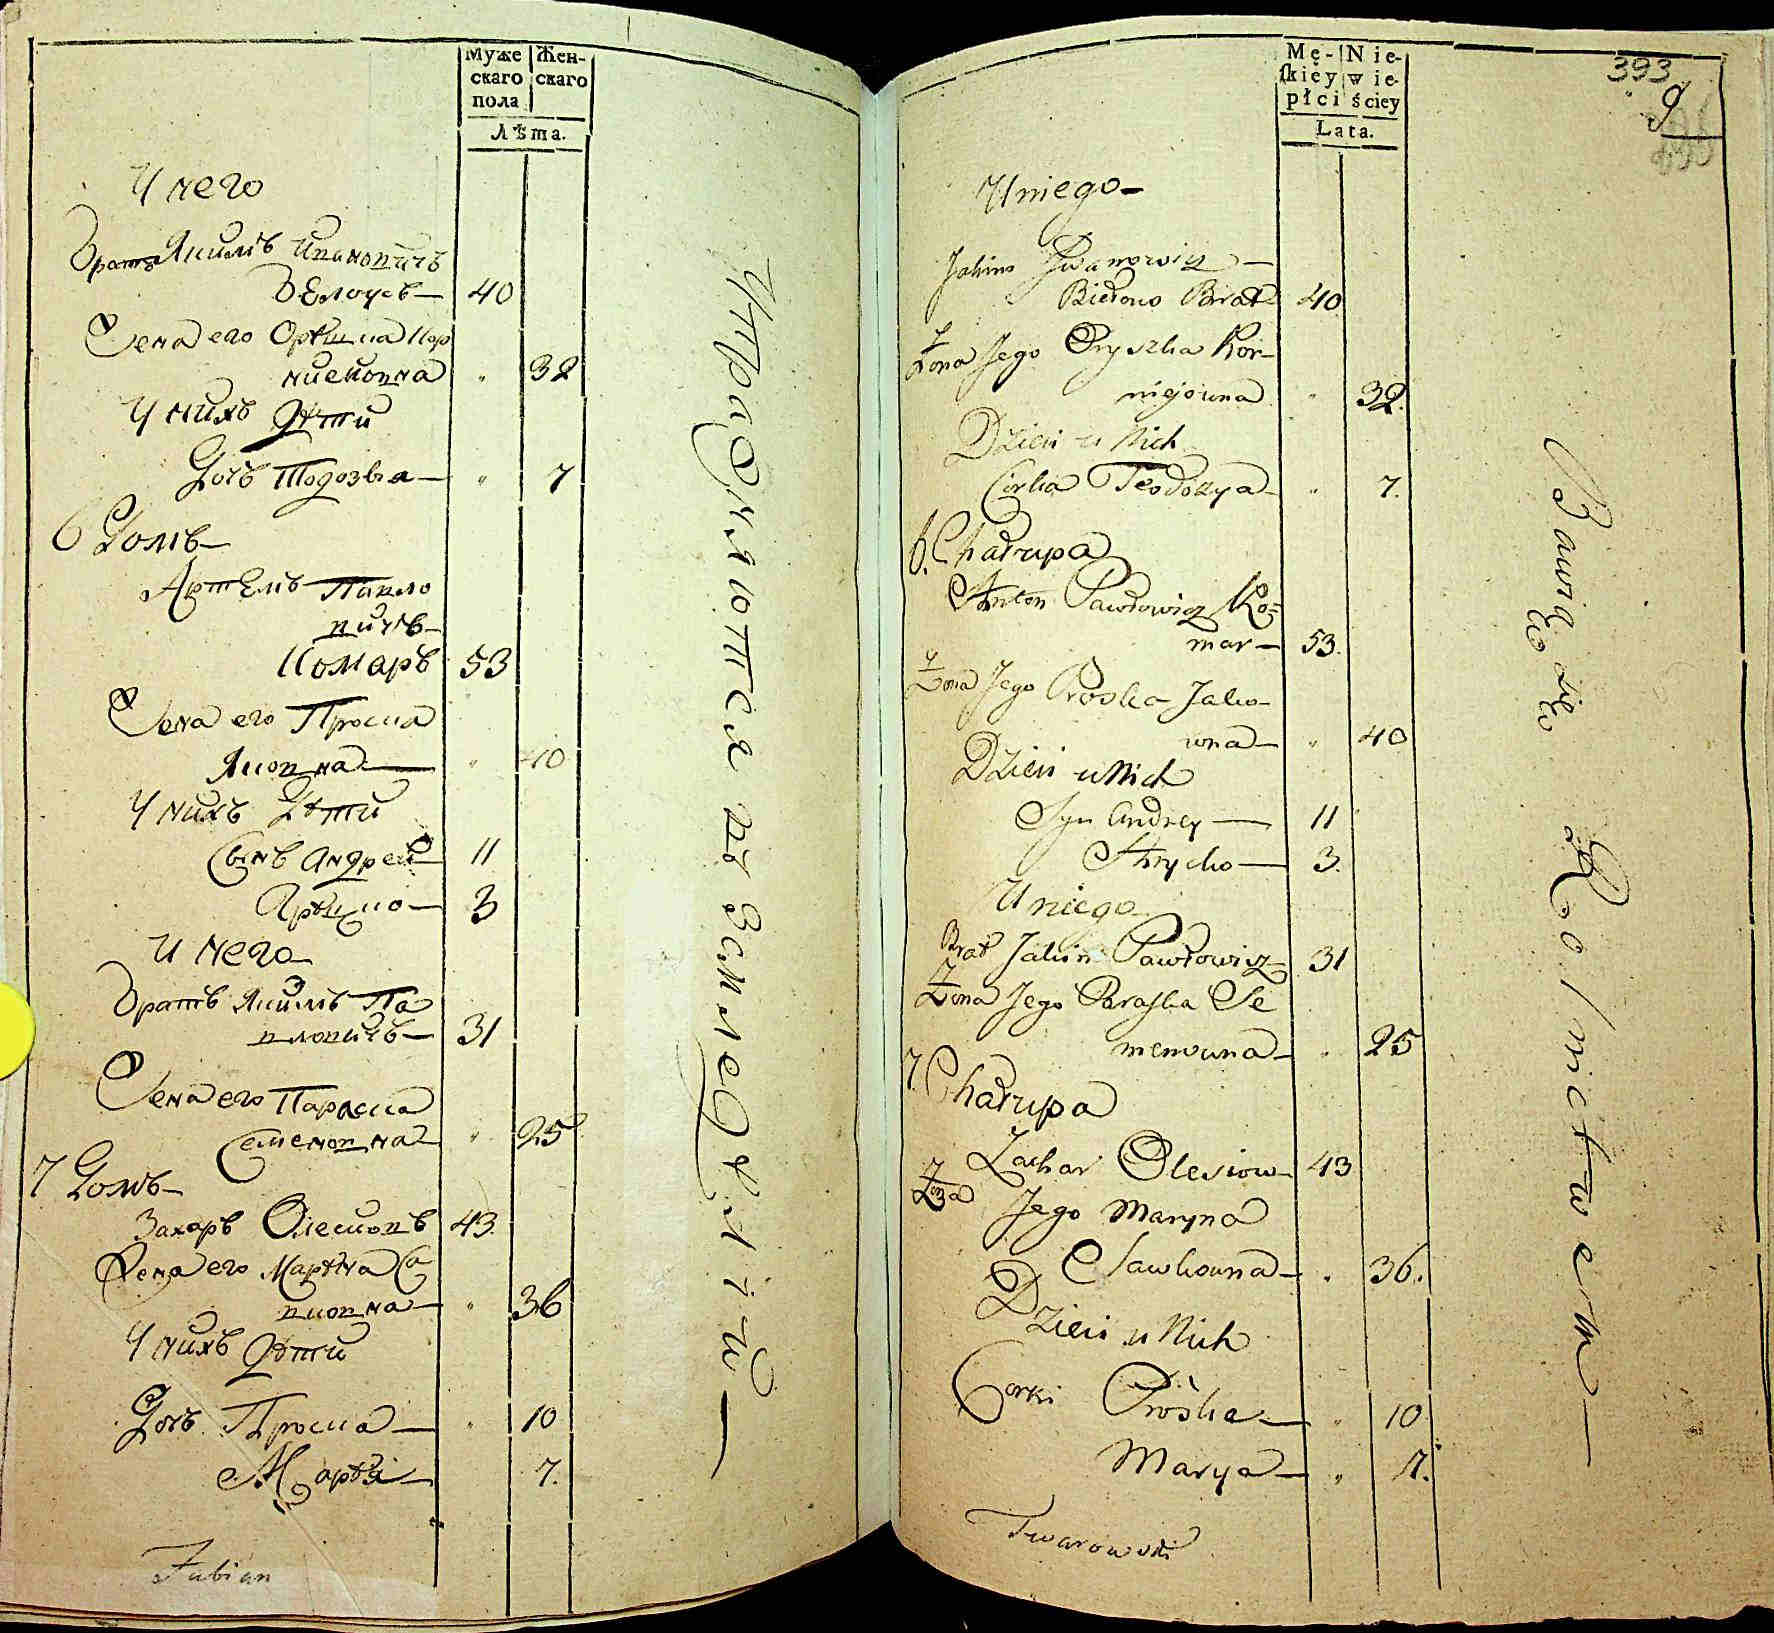 Муже
скаго
пола
Жен-
скаго
Лѣта.
У него
Братъ Якимъ Ивановичъ
Бѣлоусъ — 40
Жена его Орышка Кор
ниевовна " 32
У нихъ дѣти
Дочь Тодозья — " 7
6 Домъ —
Артемъ Павло
вичъ —
Комаръ 53
Жена его Проска
Яковна — " 40
У нихъ дѣти
Сынъ Андрей — 11
Грышко — 3
У него
Братъ Якимъ Па
вловичъ — 31
Жена его Параска
Семеновна " 25
7 Домъ —
Захаръ Олесиовъ 43
Жена его Марына Са
вковна — " 36
У нихъ дѣти
Дочь Проска — " 10
Марья — 7.
Fabian
Упражняются въ земледѣлiи —
Mę-
skiey
płci
Nie-
wie-
ściey
Lata.
393
9
U niego —
Jakim Jwanowicz —
Biełono Brat 40
Żona Jego Oryszka Kor-
niejowna " 32.
Dzieci u Nich
Corka Teodozya — " 7.
6. Chałupa
Anton Pawłowicz Ko=
mar — 53.
Żona Jego Proska Jako-
wna — " 40
Dzieci u Nich
Syn Andrey — 11
Hrycko — 3.
U niego
Brat Jakim Pawłowicz 31
Żona Jego Paraska Se
menowna — " 25
7. Chałupa
Zachar Olesiow — 43
Żona Jego Maryna
Sawkowna — " 36.
Dzieci u Nich
Corki Proska — " 10
Marya — " 7.
Twarowski
Bawią się Rolnictwem —